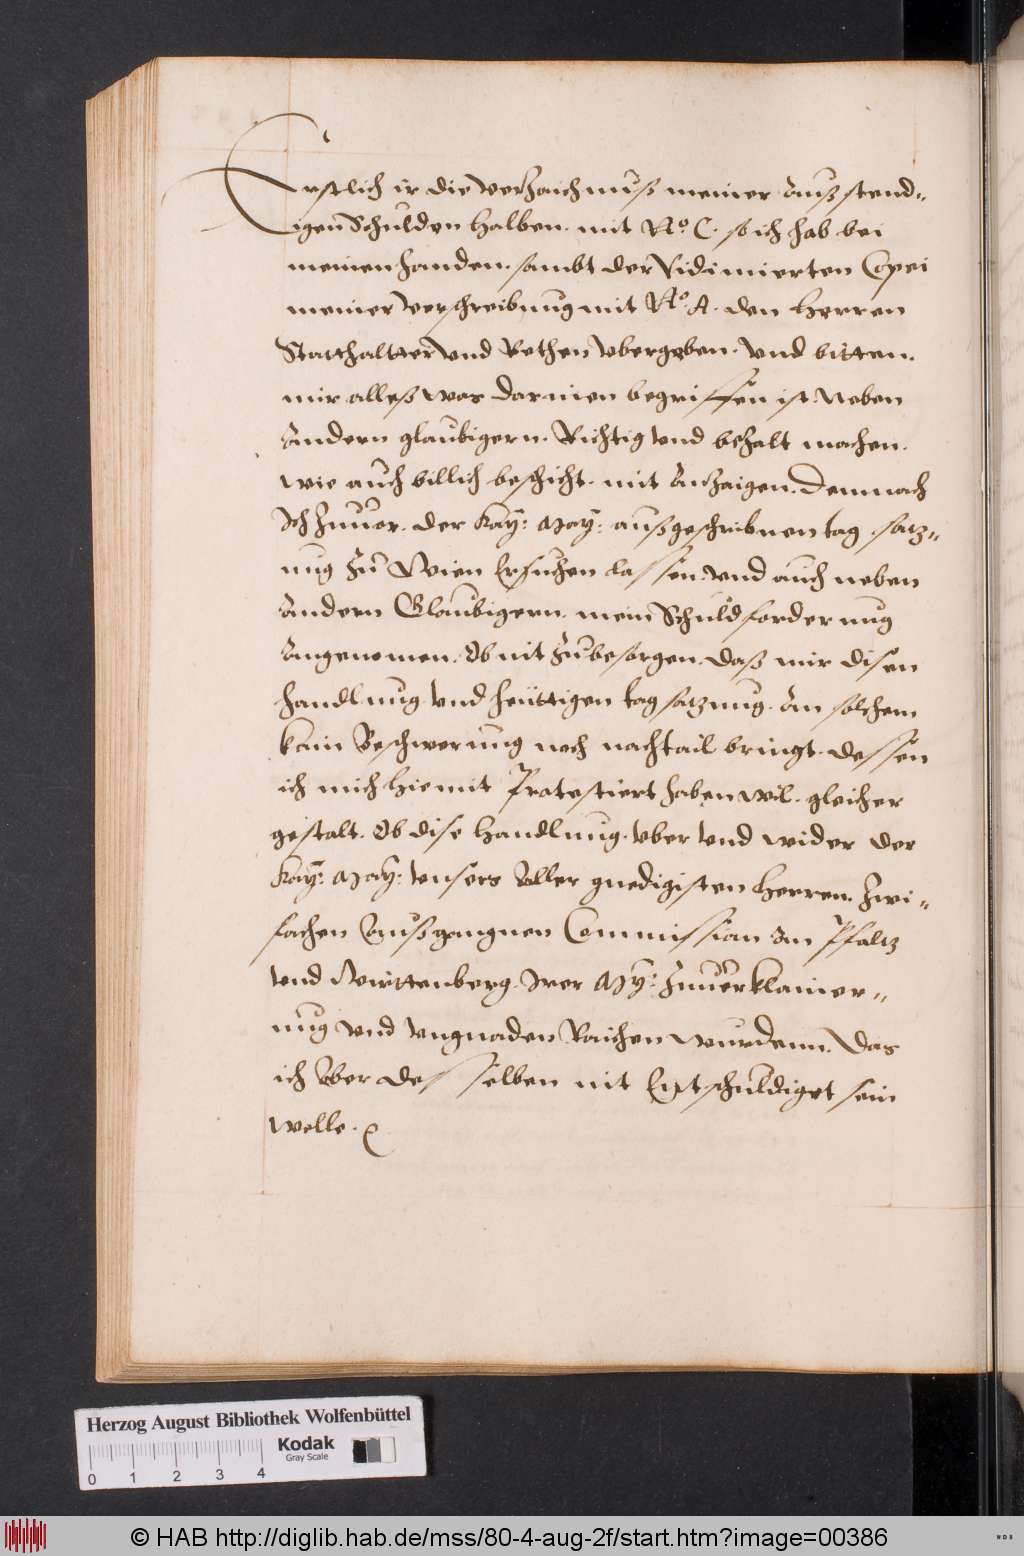 Erstlich ir die Verzaichnuß meiner Außstend-
igen Schulden halben. mit No. C. so ich hab bei
meinen handen. sambt der Vidimierten Copei
meiner Verschreibung mit No. A. den Herren
Statthaltter vnd Rethen vbergeben. vnd bitten.
mir alleß was darinen begriffen ist Neben
Andern glaubigern. Richtig vnd behalt machen.
wie auch billich beschicht. mit Anzaigen. Demnach
Ich zuuor. der Kay: May: außgeschribnen tag. satz-
ung zu Wien Ersuchen lassen. vnd auch neben
Andern Glaubigern. mein Schuldforderung
Angenomen. Ob nit zubesorgen. daß mir disen
handlung vnd heüttigen tagsatzung. An solchem
kain Beschwerung noch nachtail bringt. dessen
ich mich hiemit Protestiert haben wil. gleicher
gestalt. Ob dise Handlung. vber vnd wider der
Kay: May: vnsers Aller gnedigisten Herren. Zwi-
fachen Außgangnen Commission Im Pfaltz
vnd Wirttenberg. Irer My: zuuerklainer-
ung vnd vngnaden Raichen wurdenn. Das
ich Aber desselben nit Entschuldiget sein
welle.
Herzog August Bibliothek Wolfenbüttel
Kodak
Gray Scale
0 1 2 3 4
© HAB http://diglib.hab.de/mss/80-4-aug-2f/start.htm?image=00386